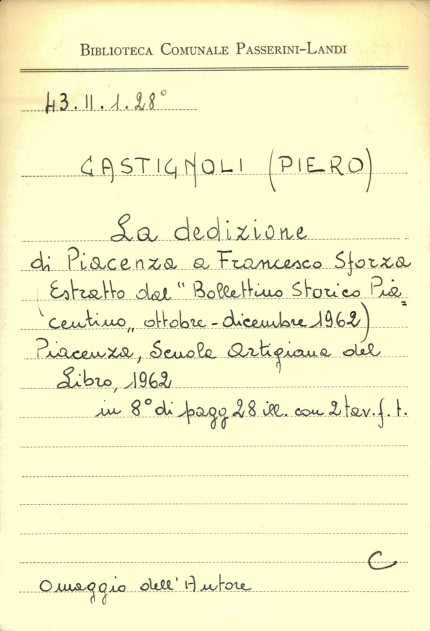 BIBLIOTECA COMUNALE PASSERINI-LANDI
43.II.1.28°
CASTIGNOLI (PIERO)
La dedizione
di Piacenza a Francesco Sforza
(Estratto dal "Bollettino Storico Pia=
centino„ ottobre-dicembre 1962)
Piacenza, Scuola Artigiana del
Libro, 1962
in 8° di pagg 28 ill. con 2 tav. f. t.
C
Omaggio dell'Autore